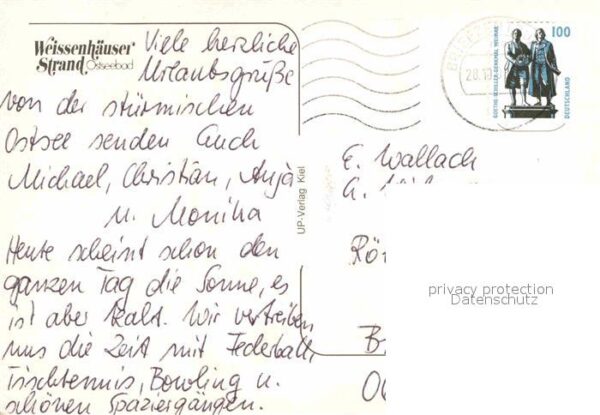 Weissenhäuser
Strand Ostseebad
Viele herzliche
Urlaubsgrüße
von der stürmischen
Ostsee senden Euch
Michael, Christian, Anja
u. Monika
Heute scheint schon den
ganzen Tag die Sonne, es
ist aber kalt. Wir vertreiben
uns die Zeit mit Federball,
Tischtennis, Bowling u.
schönen Spaziergängen.
UP-Verlag Kiel
100
GOETHE-SCHILLER-DENKMAL WEIMAR
DEUTSCHLAND
E. Wallach
privacy protection
Datenschutz